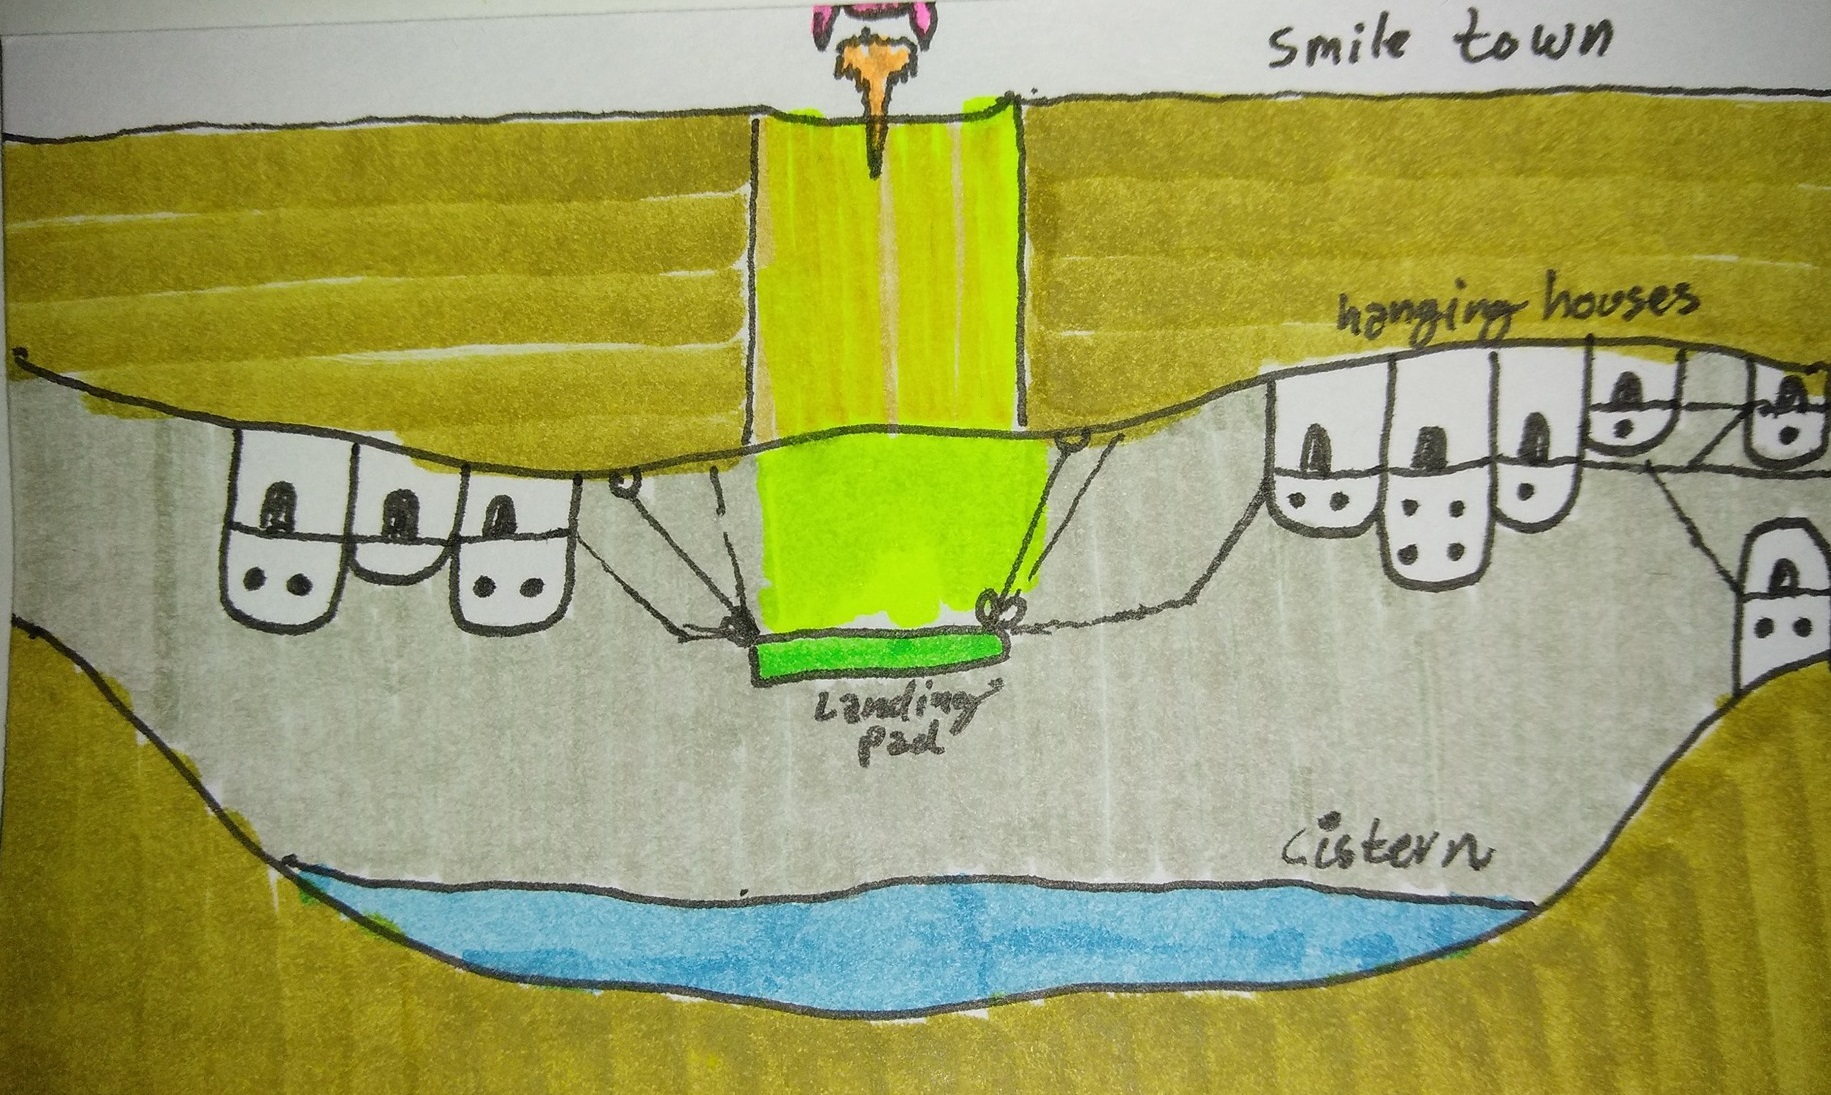 Smile town
hanging houses
Landing
pad
Cistern